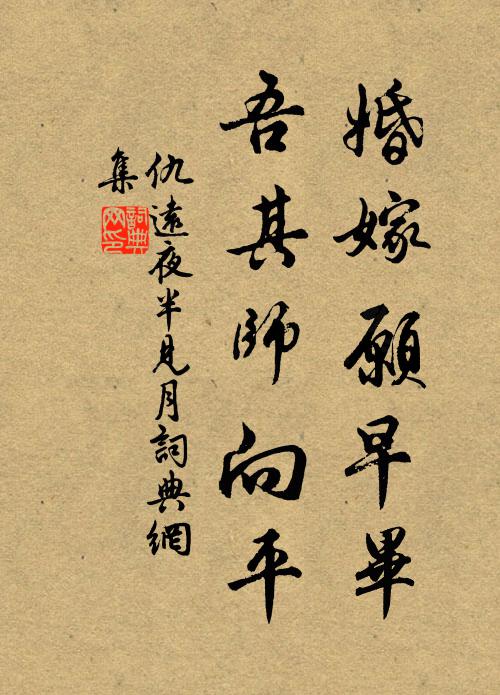 婚嫁願早畢
吾其師向平
仇遠夜半見月詞典網
集
詞典
网印